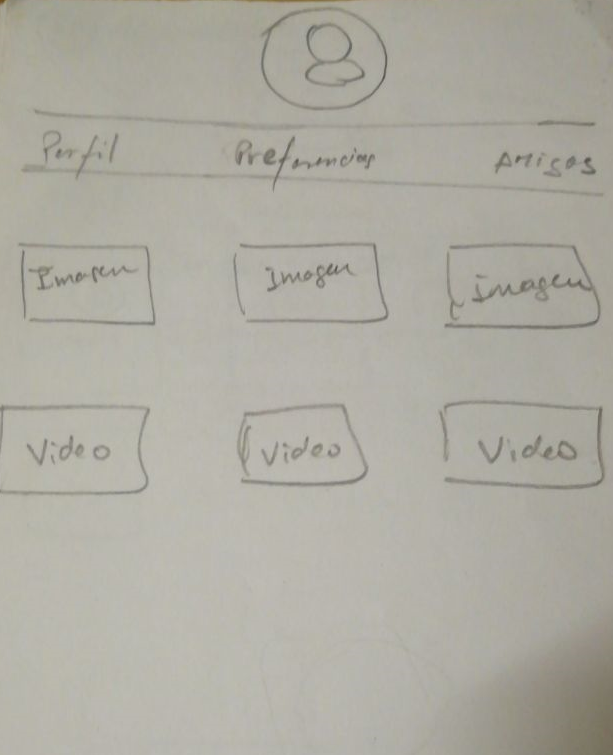 Perfil Preferencias Amigos
Imagen Imagen imagen
Video Video Video